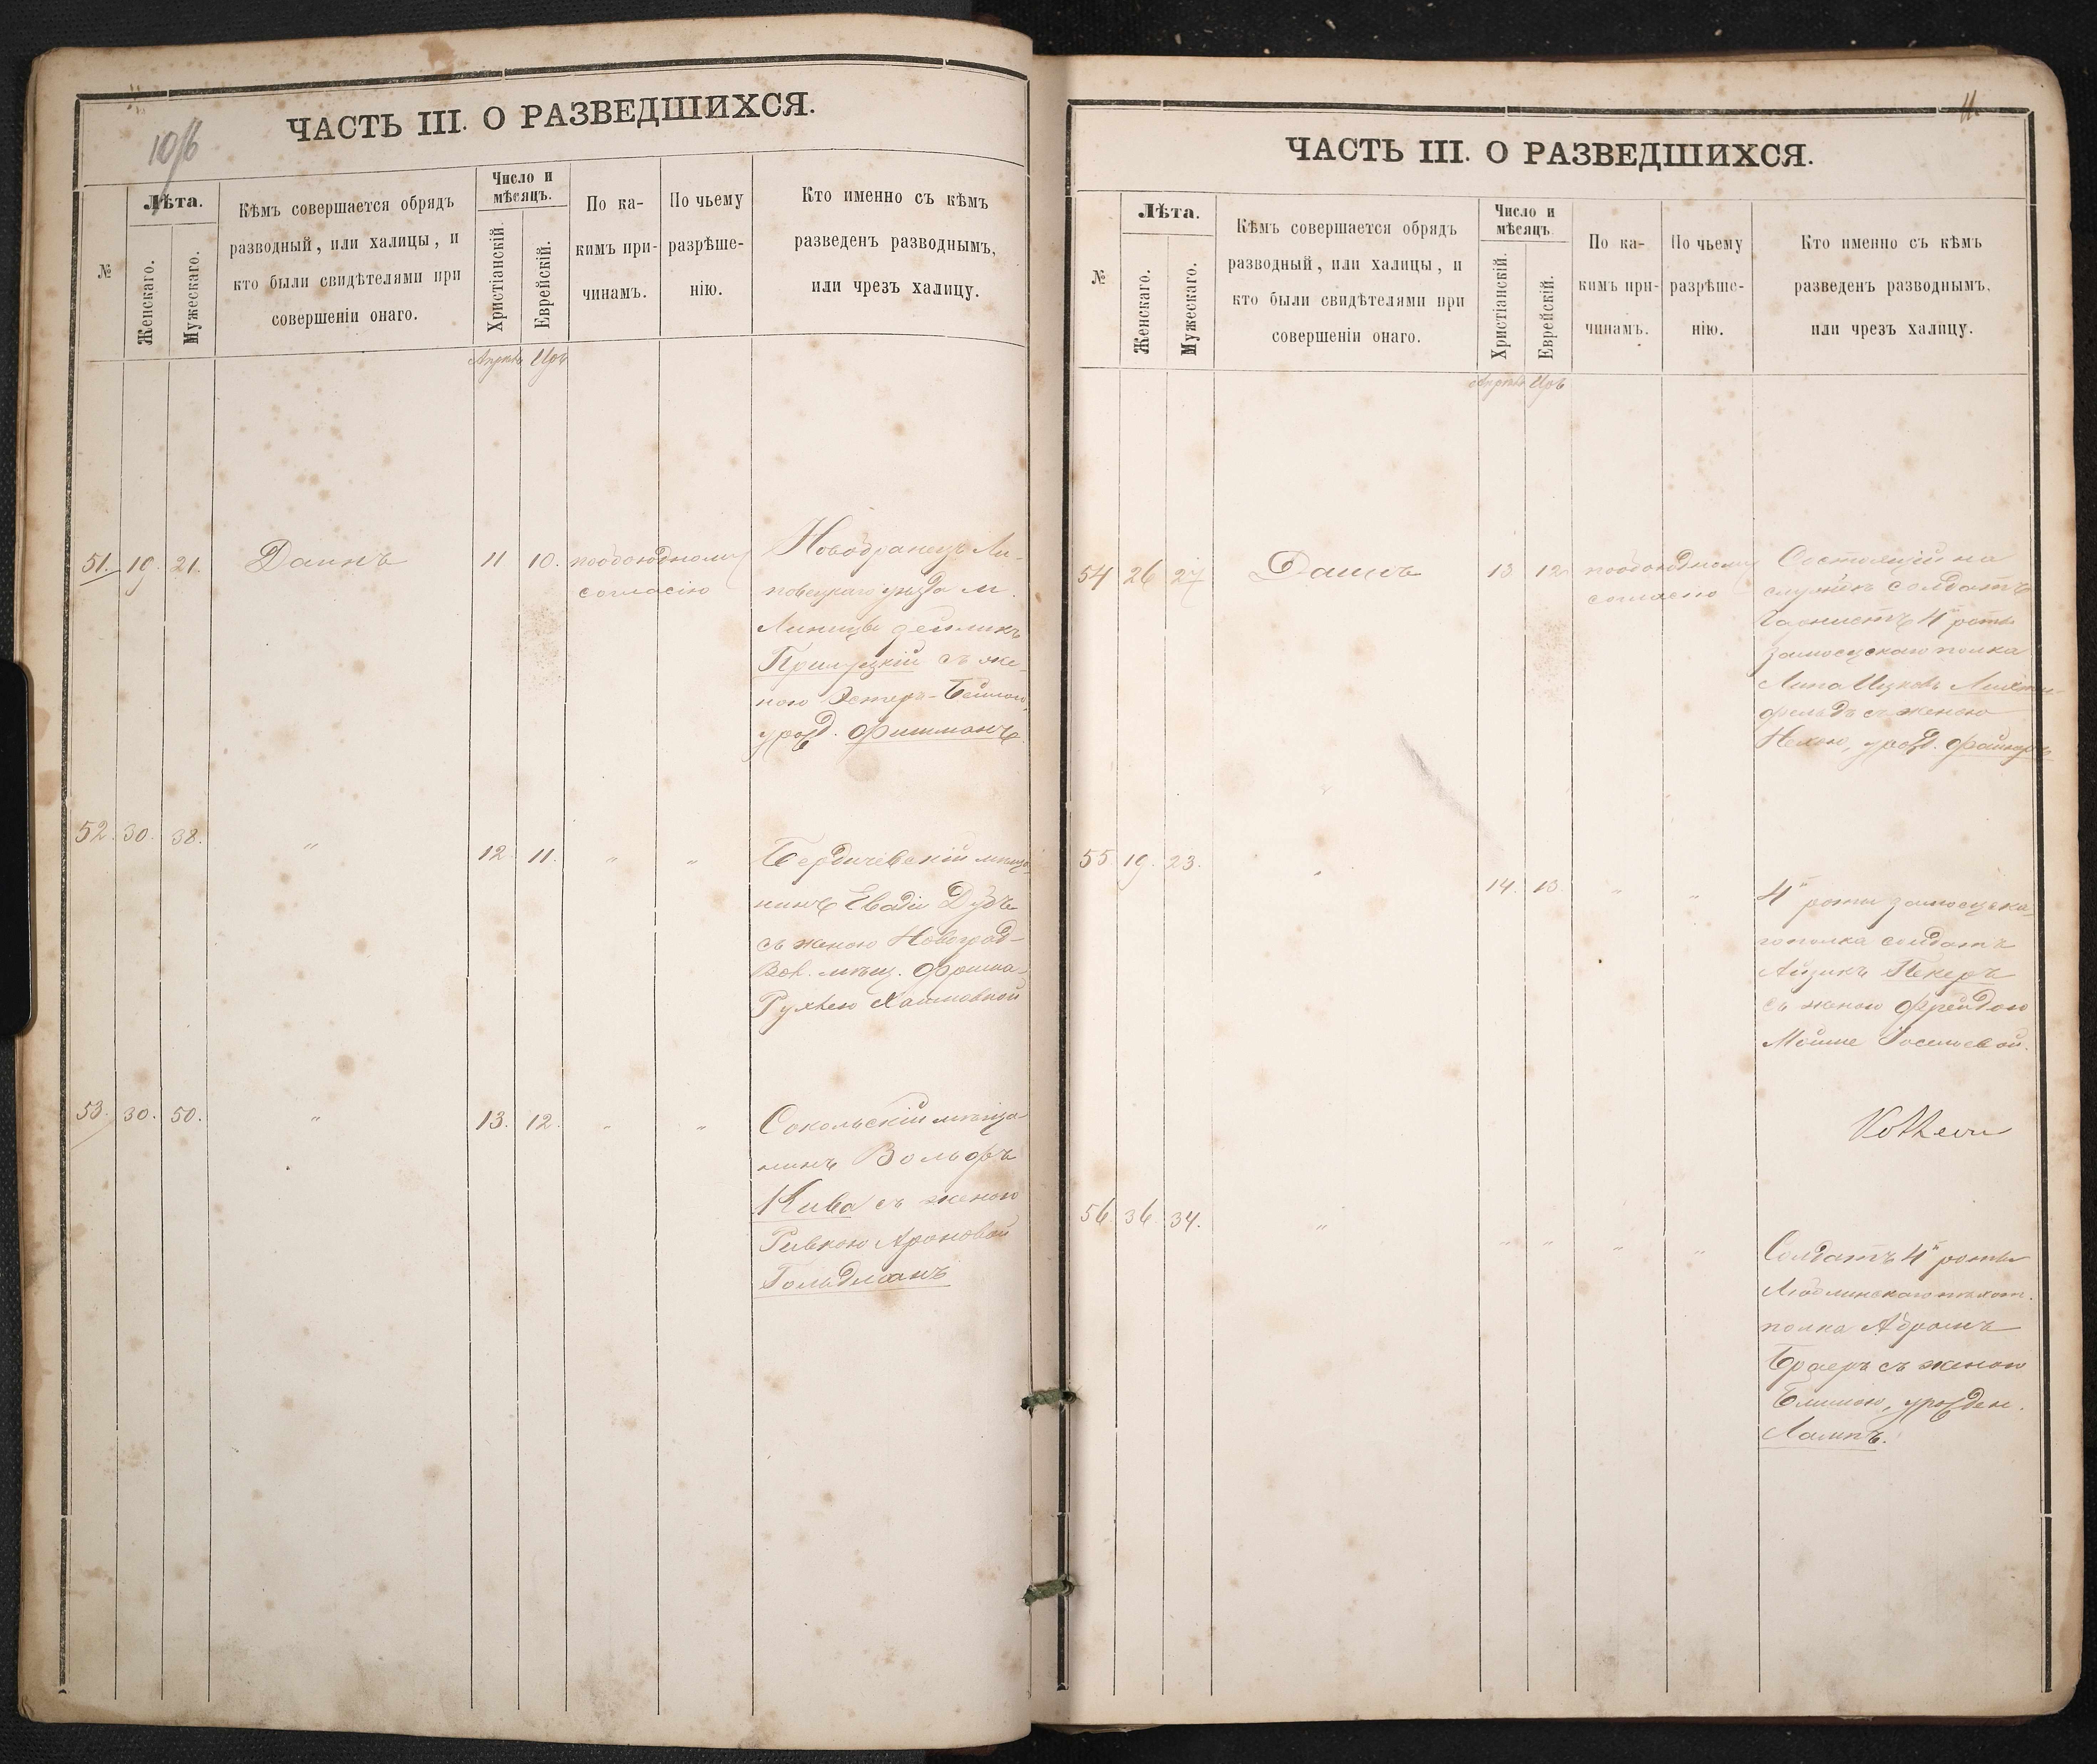 10/б
ЧАСТЬ III. О РАЗВЕДШИХСЯ.
№
Лѣта.
Женскаго.
Мужескаго.
Кѣмъ совершается обрядъ
разводный, или халицы, и
кто были свидѣтелями при
совершеніи онаго.
Число и
мѣсяцъ.
Христіанскій.
Еврейскій.
По ка-
кимъ при-
чинамъ.
По чьему
разрѣше-
нію.
Кто именно съ кѣмъ
разведенъ разводнымъ,
или чрезъ халицу.
Апрѣль Иръ
51. 19. 21. 11 10. пообоюдному
согласію
Новобранецъ Ли-
повецкаго уѣзда м.
Линицы
Прилуцкій съ же-
ною Эстеръ-Бейлою,
урожд. Фишманъ
52. 30. 38. " 12. 11. " "
Бердичевскій мѣща-
нинъ Евадій Дубъ
съ женою Новоград-
Вол. мѣщ. Фрима-
Рухлею Хаимовной
53. 30. 50. " 13. 12. " "
Сокольскій мѣща-
нинъ Вольфъ
Кива съ женою
Ривкою Ароновой
Гольдманъ
11.
ЧАСТЬ III. О РАЗВЕДШИХСЯ.
№
Лѣта.
Женскаго.
Мужескаго.
Кѣмъ совершается обрядъ
разводный, или халицы, и
кто были свидѣтелями при
совершеніи онаго.
Число и
мѣсяцъ.
Христіанскій.
Еврейскій.
По ка-
кимъ при-
чинамъ.
По чьему
разрѣше-
нію.
Кто именно съ кѣмъ
разведенъ разводнымъ,
или чрезъ халицу.
Апрѣль Иръ
54 26 27 13 12 пообоюдному
согласію
Состоящій на
службѣ солдатъ
Горнистъ 4й роты
Замосцскаго полка
Липа Ицковъ
съ женою
урожд.
55 19. 23. " 14. 13. " "
4й роты Замосцска-
го полка солдатъ
Айзикъ Пекеръ
съ женою Фрейдою
Мойше Іоселевой.
56. 36. 34. " " " " "
Солдатъ 4й роты
Люблинскаго пѣхот.
полка Абрамъ
съ женою
Блимою, урожден.
Лампъ.